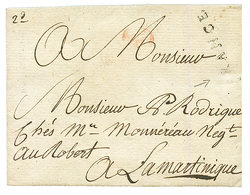 22
A Monsieur
Monsieur P. Rodrigue
Chés Mr. Monnéreau Negt.
Au Robert
A Lamartinique